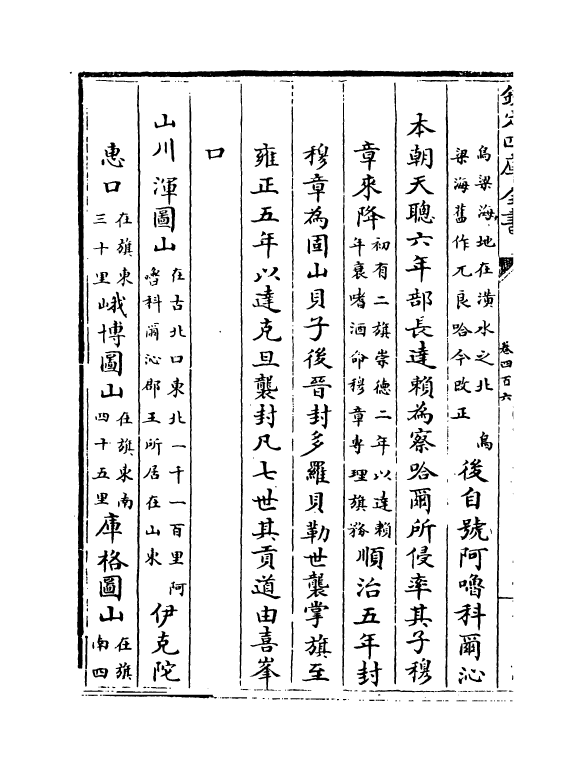 欽定四庫全書
卷四百六
烏梁海地在潢水之北 烏
梁海舊作兀良哈今改正
後自號阿嚕科爾沁
本朝天聰六年部長達賴為察哈爾所侵率其子穆
章來降
初有二旗崇德二年以達賴
年衰嗜酒命穆章專理旗務
順治五年封
穆章為固山貝子後晉封多羅貝勒世襲掌旗至
雍正五年以達克旦襲封凡七世其貢道由喜峯
口
山川 渾圖山
在古北口東北一千一百里阿
嚕科爾沁郡王所居在山東
伊克陀
惠口
在旗東
三十里
峨博圖山
在旗東南
四十五里
庫格圖山
在旗
南四